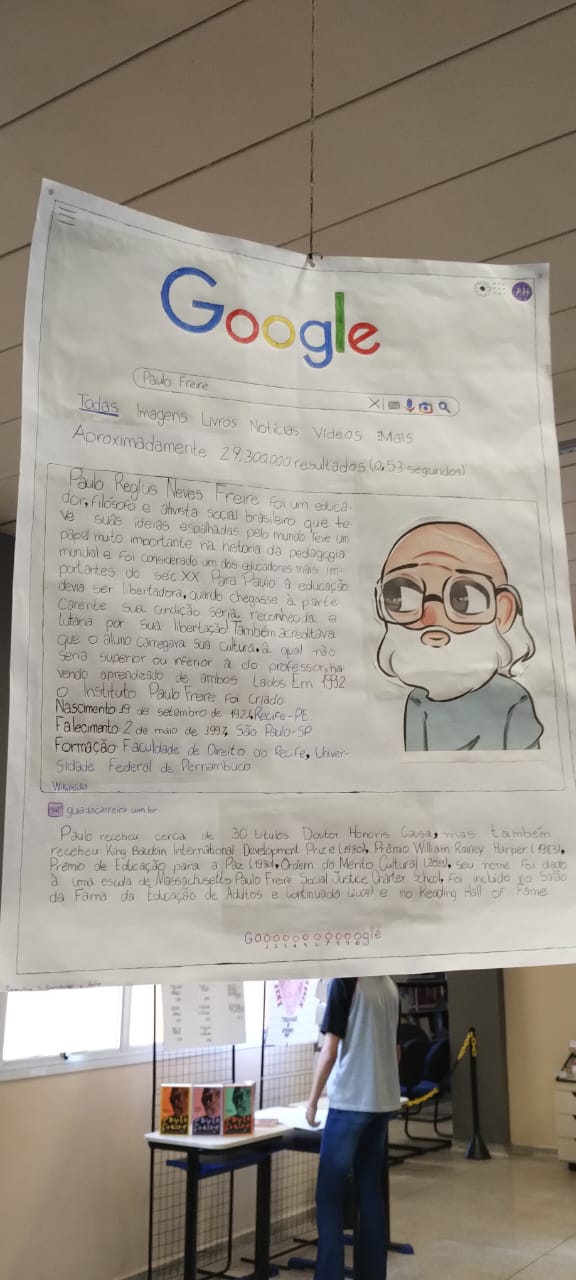 Google
Paulo Freire
Todas Imagens Livros Notícias Vídeos Mais
Aproximadamente 29.300.000 resultados (0,53 segundos)
Paulo Reglus Neves Freire foi um educa-
dor, filósofo e ativista social brasileiro que te-
ve suas ideias espalhadas pelo mundo, teve um
papel muito importante na história da pedagogia
mundial e foi considerado um dos educadores mais im-
portantes do séc XX Para Paulo a educação
devia ser libertadora, quando chegasse à parte
carente sua condição seria reconhecida e
lutaria por sua libertação. Também acreditava
que o aluno carregava sua cultura, a qual não
seria superior ou inferior a do professor, ha-
vendo aprendizado de ambos Lados. Em 1992
o Instituto Paulo Freire foi Criado.
Nascimento: 19 de setembro de 1921, Recife-PE.
Falecimento: 2 de maio de 1997, São Paulo-SP
Formação Faculdade de Direito do Recife, Univer-
sidade Federal de Pernambuco
Wikipedia
guiadacarreira.com.br
Paulo recebeu cerca de 30 títulos Doutor Honoris Causa, mas também
recebeu King Baudoin International Development Prize (1980), Prêmio William Rainey Harper (1983),
Prêmio de Educação para a Paz (1986), Ordem do Mérito Cultural (2011), seu nome foi dado
à uma escola de Massachusetts Paulo Freire Social Justice Charter School, foi incluido no Salão
da Fama da Educação de Adultos e Continuada (2008) e no Reading Hall of Fame
Goooooooooogle
1 2 3 4 5 6 7 8 9 10